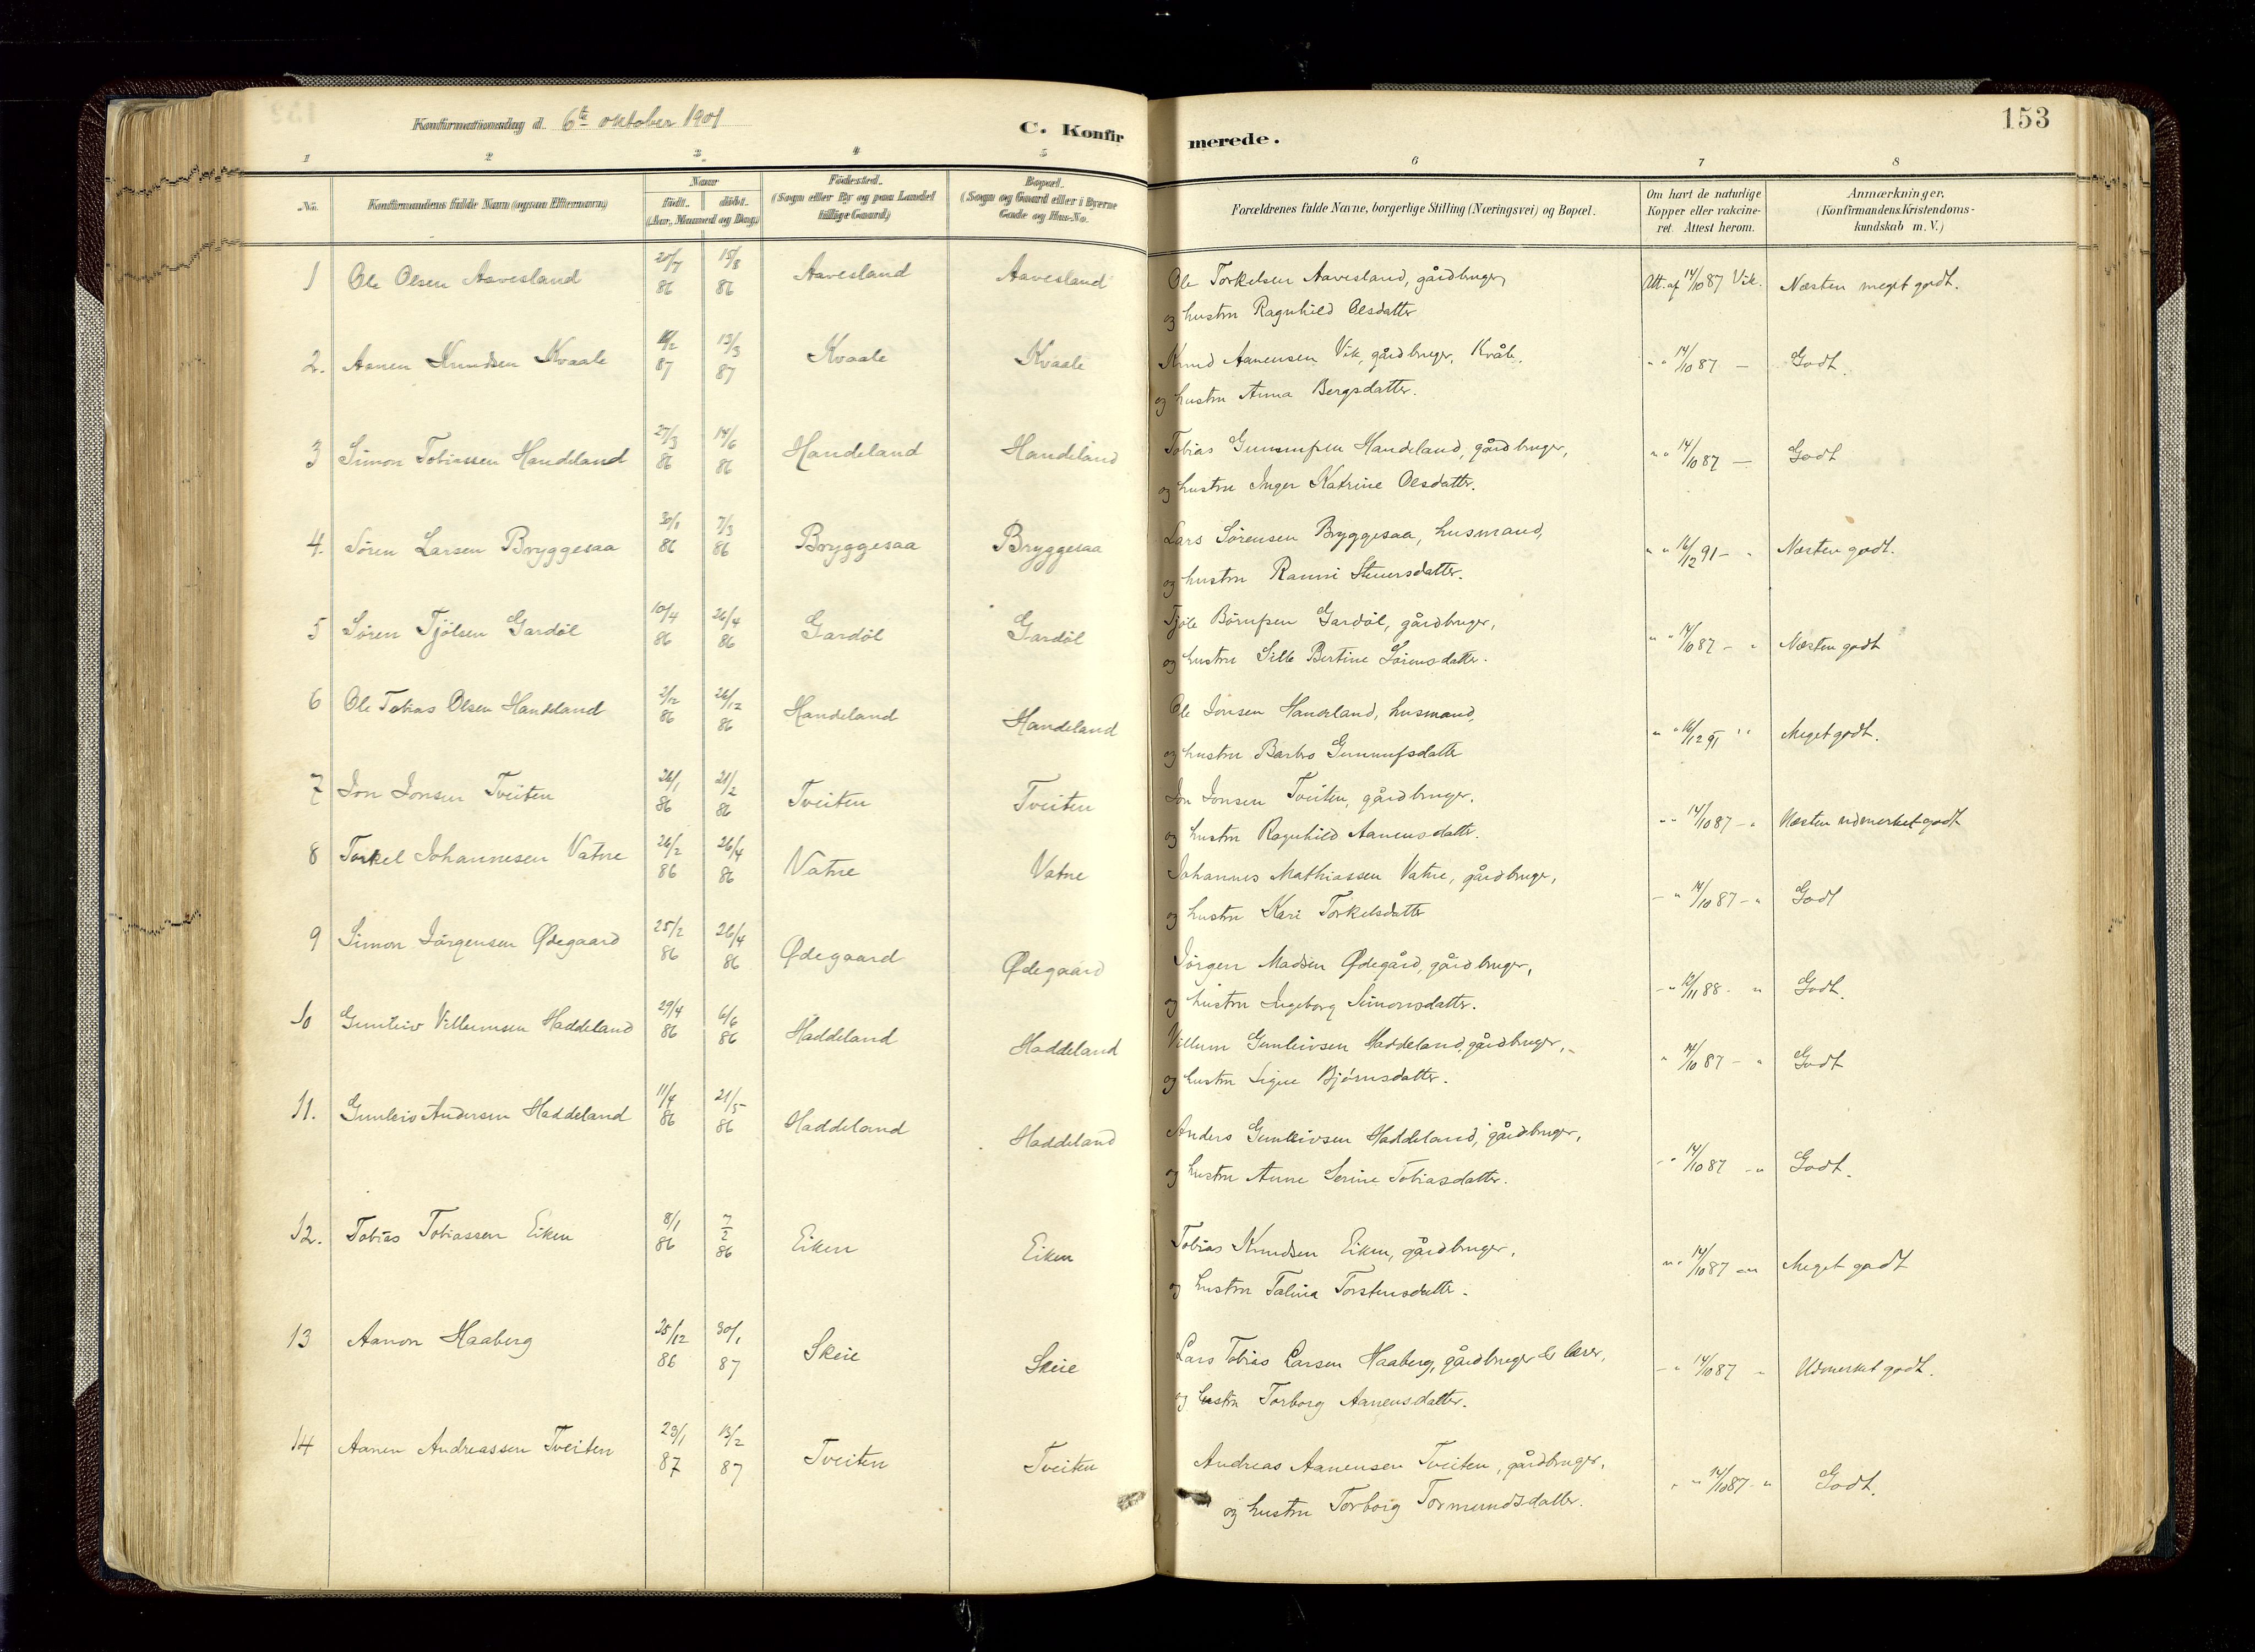 153
Konfirmationsdag d. 6te oktober 1901
C. Konfirmerede.
1 2 3 4 5 6 7 8
No. Konfirmandens fulde Navn (ogsaa Efternavn) Naar født. døbt. (Aar, Maaned og Dag) Fødested. (Sogn eller By og paa Landet tillige Gaard) Bopæl. (Sogn og Gaard eller i Byerne Gade og Hus-No. Forældrenes fulde Navne, borgerlige Stilling (Næringsvei) og Bopæl. Om havt de naturlige Kopper eller vakcineret. Attest herom. Anmærkninger. (Konfirmandens Kristendomskundskab m. V.)
1 Ole Olsen Aavesland 20/7 86 15/8 86 Aavesland Aavesland Ole Torkelsen Aavesland, gårdbruger, Att. af 14/10 87 Vik. Næsten meget godt.
og hustru Ragnhild Olsdatter
2. Aanen Knudsen Kvaale 87 13/3 87 Kvaale Kvaale Knud Aanensen Vik, gårdbruger, Kvåle. " " 14/10 87 — Godt.
og hustru Anna Bergsdatter.
3 Simon Tobiassen Handeland 27/3 86 14/6 86 Handeland Handeland Tobias Handeland, gårdbruger, " " 14/10 87 — Godt
og hustru Inger Katrine Olsdatter.
4. Søren Larsen Bryggesaa 30/1 86 7/3 86 Bryggesaa Bryggesaa Lars Sørensen Bryggesaa, husmand, " " 16/12 91 — " Næsten godt.
og hustru Ranni
5 Søren Tjølsen Gardøl 10/4 86 26/4 86 Gardøl Gardøl Tjøle Gardøl, gårdbruger, " " 14/10 87 — " Næsten godt
og hustru Sille Bertine Sørensdatter.
6 Ole Tobias Olsen Handeland 2/12 86 26/12 86 Handeland Handeland Ole Jonsen Handeland, husmand, " " 16/12 91 " " Meget godt.
og hustru Barbro
7 Jon Jonsen Tveiten 24/1 86 21/2 86 Tveiten Tveiten Jon Jonsen Tveiten, gårdbruger, " " 14/10 87 — " Næsten udmerket godt
og hustru Ragnhild Aanensdatter.
8 Torkel Johannesen Vatne 26/2 86 26/4 86 Vatne Vatne Johannes Mathiassen Vatne, gårdbruger, — " 14/10 87 — " Godt
og hustru Kari Torkelsdatter
9 Simon Jörgensen Ødegaard 25/2 86 26/4 86 Ødegaard Ødegaard Jörgen Madsen Ødegård, gårdbruger, — " 12/11 88 — " Godt.
og hustru Ingeborg Simonsdatter.
10 Gunleiv Villumsen Haddeland 29/4 86 6/6 86 Haddeland Haddeland Villum Gunleivsen Haddeland, gårdbruger, " 14/10 87 — " Godt
og hustru Signe Bjørnsdatter.
11. Gunleiv Andersen Haddeland 11/4 86 21/5 86 Haddeland Haddeland Anders Gunleivsen Haddeland, gårdbruger, — " 14/10 87 — " Godt.
og hustru Anne Serine Tobiasdatter.
12. Tobias Tobiassen Eiken 8/1 86 7/2 86 Eiken Eiken Tobias Knudsen Eiken, gårdbruger, " " 14/10 87 — " Meget godt
og hustru Talina Torstensdatter.
13 Aanon Haaberg 25/12 86 30/1 87 Skeie Skeie Lars Tobias Larsen Haaberg, gårdbruger & lærer, — " 14/10 87 " Udmerket godt.
og hustru Torborg Aanensdatter.
14 Aanen Andreassen Tveiten 23/1 87 13/2 87 Tveiten Tveiten Andreas Aanensen Tveiten, gårdbruger, " " 14/10 87 — " Godt.
og hustru Torborg Tormundsdatter.